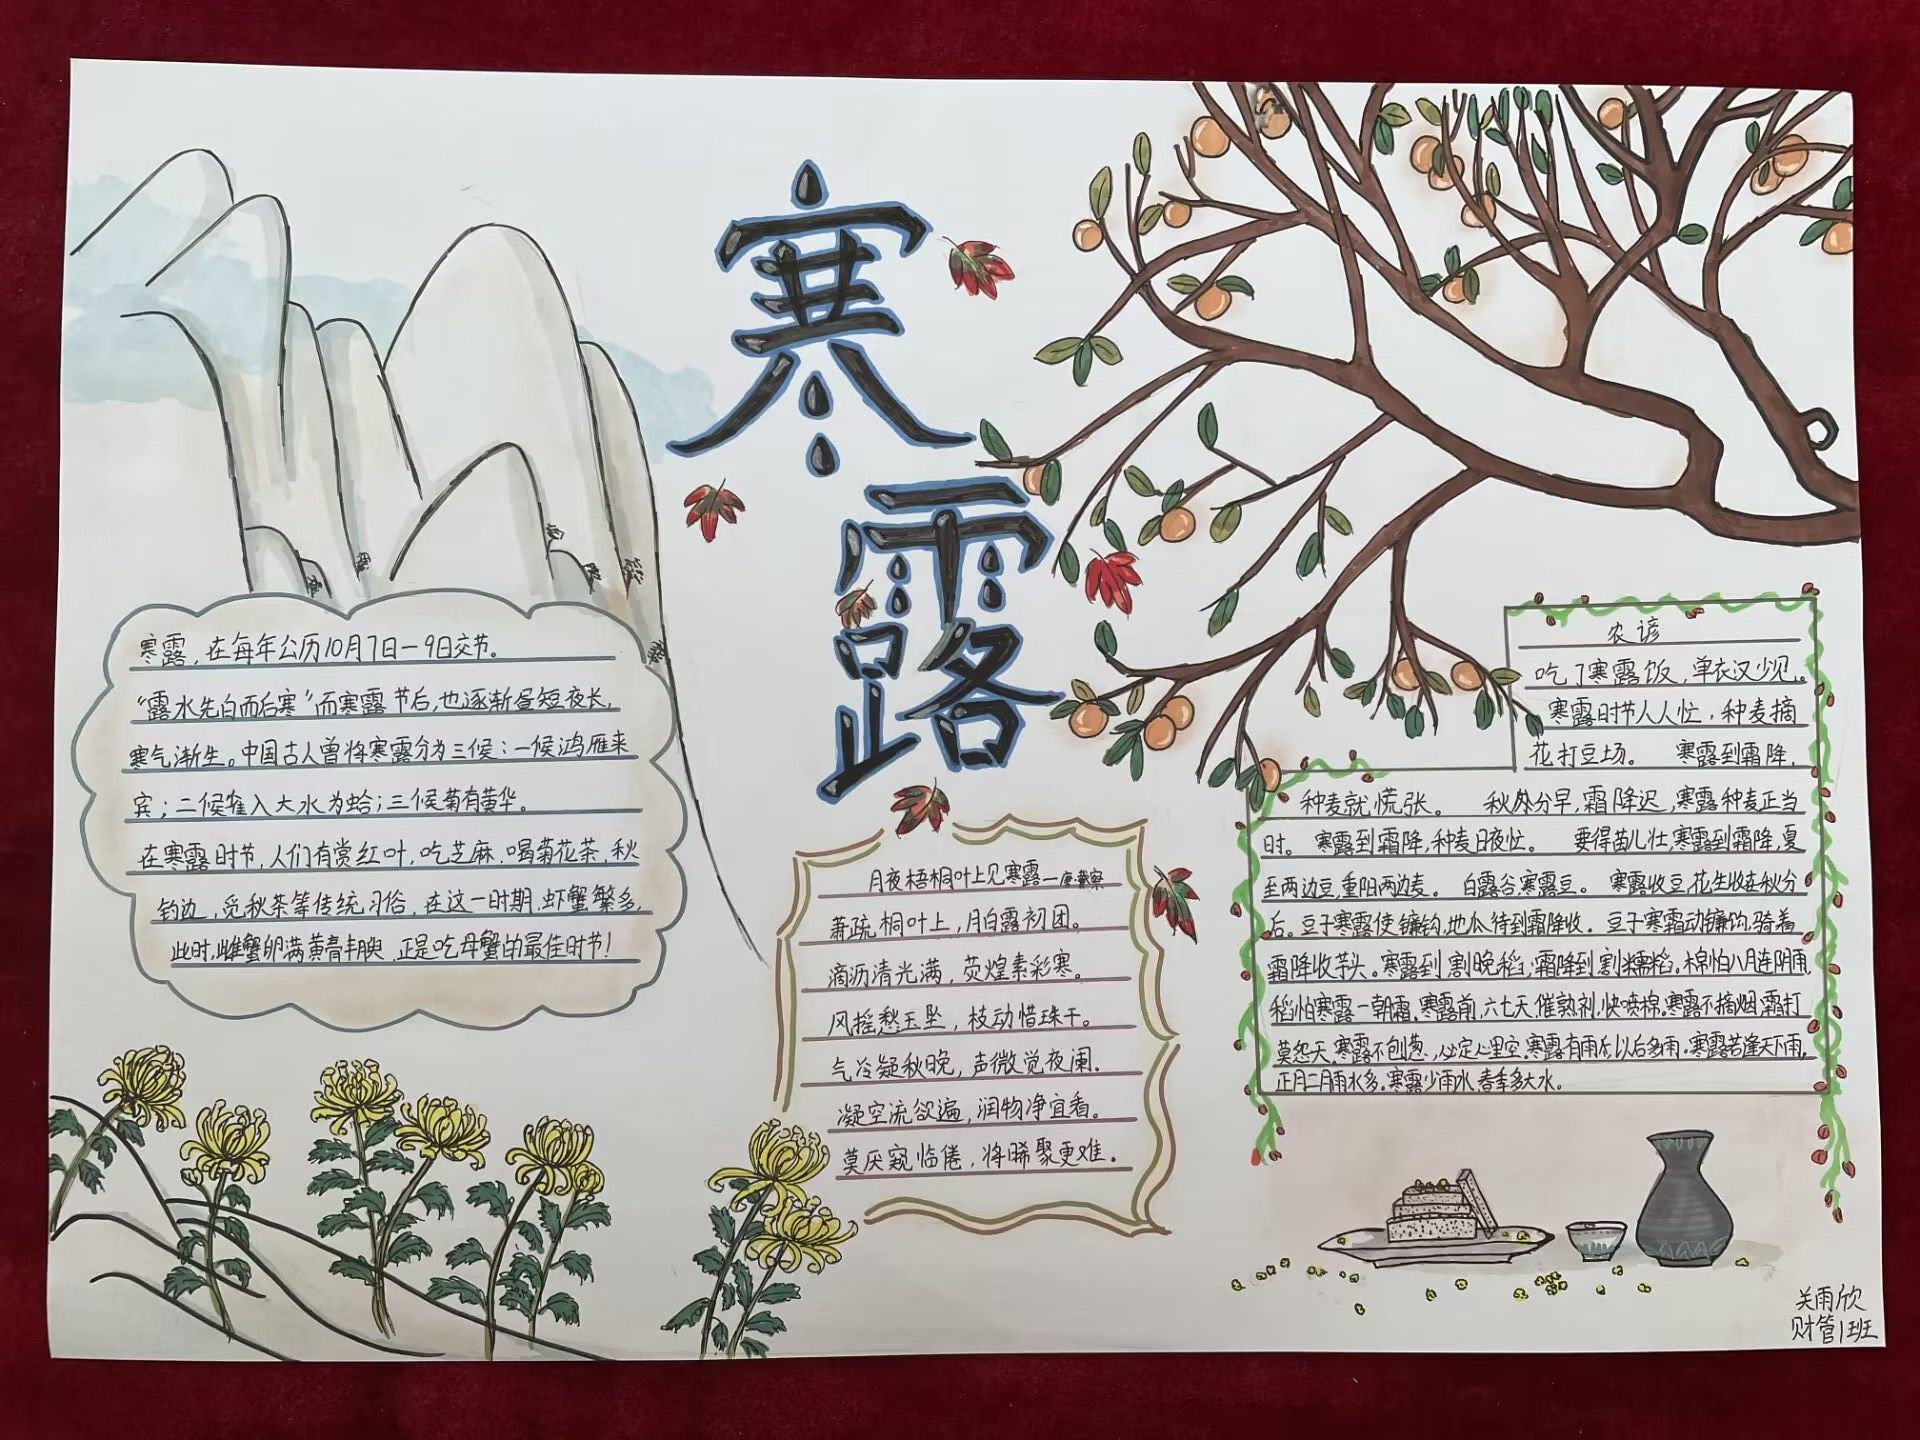 寒露
寒露，在每年公历10月7日—9日交节。
“露水先白而后寒”而寒露节后，也逐渐昼短夜长，
寒气渐生。中国古人曾将寒露分为三候：一候鸿雁来
宾；二候雀入大水为蛤；三候菊有黄华。
在寒露时节，人们有赏红叶，吃芝麻，喝菊花茶，秋
钓边，觅秋茶等传统习俗，在这一时期，虾蟹繁多，
此时，雌蟹卵满黄膏丰腴，正是吃母蟹的最佳时节！
月夜梧桐叶上见寒露—唐
萧疏桐叶上，月白露初团。
滴沥清光满，荧煌素彩寒。
风摇愁玉坠，枝动惜珠干。
气冷疑秋晚，声微觉夜阑。
凝空流欲遍，润物净宜看。
莫厌窥临倦，将晞聚更难。
农谚
吃了寒露饭，单衣汉少见。
寒露时节人人忙，种麦摘
花打豆场。 寒露到霜降，
种麦就慌张。 秋分早，霜降迟，寒露种麦正当
时。 寒露到霜降，种麦日夜忙。 要得苗儿壮，寒露到霜降，夏
至两边豆，重阳两边麦。 白露谷，寒露豆。 寒露收豆，花生收在秋分
后。豆子寒露使镰钩，地瓜待到霜降收。豆子寒霜动镰钩，骑着
霜降收芋头。寒露到割晚稻，霜降到割糯稻。棉怕八月连阴雨，
稻怕寒露一朝霜。寒露前，六七天，催熟剂，快喷棉。寒露不摘烟，霜打
莫怨天。寒露不刨葱，必定心里空。寒露有雨，以后多雨。寒露若逢天下雨，
正月二月雨水多。寒露少雨水，春季多大水。
关雨欣
财管1班